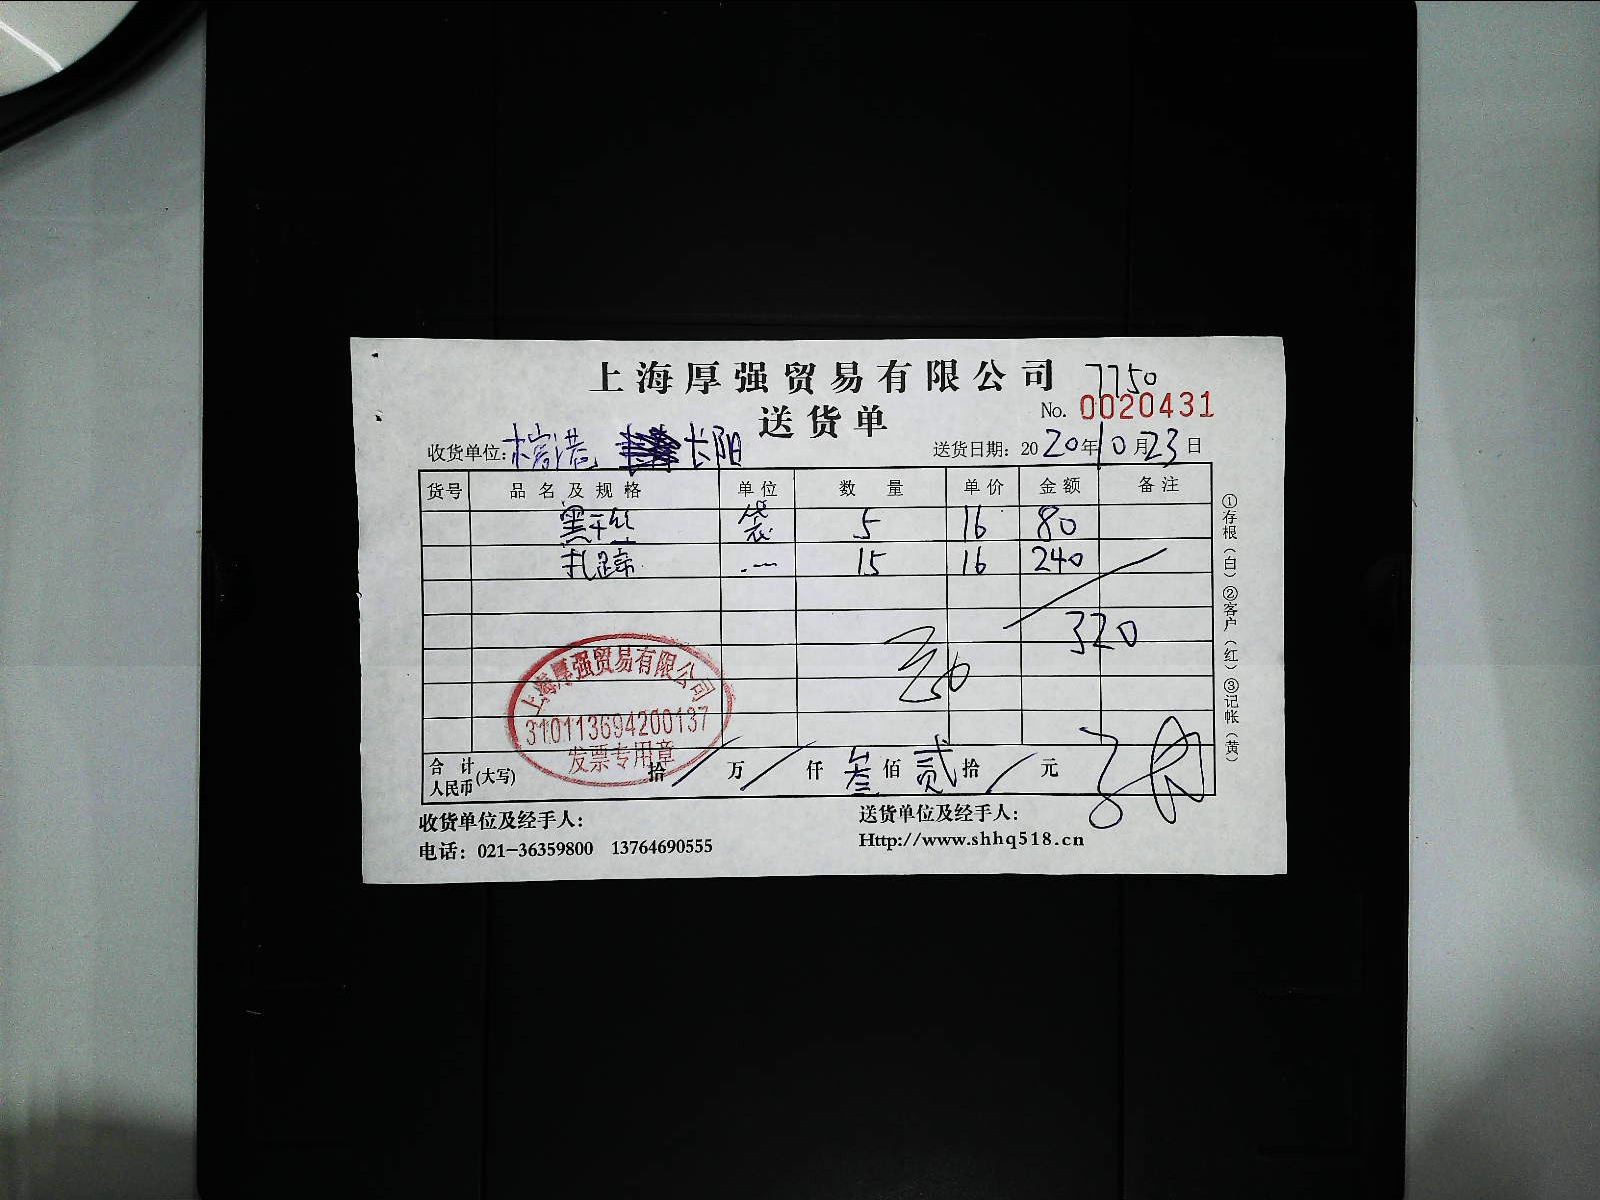 上海厚强贸易有限公司
7750
送货单
No. 0020431
收货单位: 长阳
送货日期: 2020年10月23日
货号 品名及规格 单位 数量 单价 金额 备注
黑干丝 袋 5 16 80
扎蹄 15 16 240
320
上海厚强贸易有限公司
310113694200137
发票专用章
合计人民币(大写) 拾 / 万 / 仟 叁 佰 贰 拾 / 元
收货单位及经手人:
送货单位及经手人:
电话: 021-36359800 13764690555
Http://www.shhq518.cn
①存根(白)②客户(红)③记帐(黄)